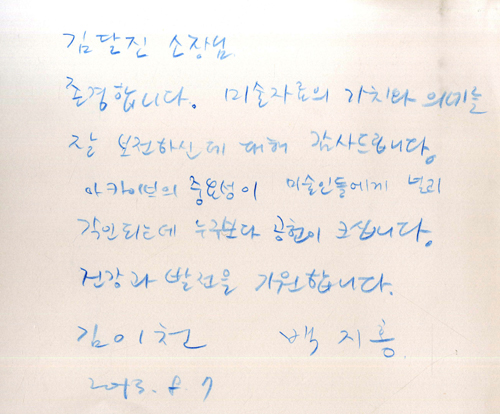 김달진 소장님.
존경합니다. 미술자료의 가치와 의미를
잘 보전하신데 대해 감사드립니다.
아카이브의 중요성이 미술인들에게 널리
각인되는데 누구보다 공헌이 크십니다.
건강과 발전을 기원합니다.
김이천 백지홍
2013. 8. 7